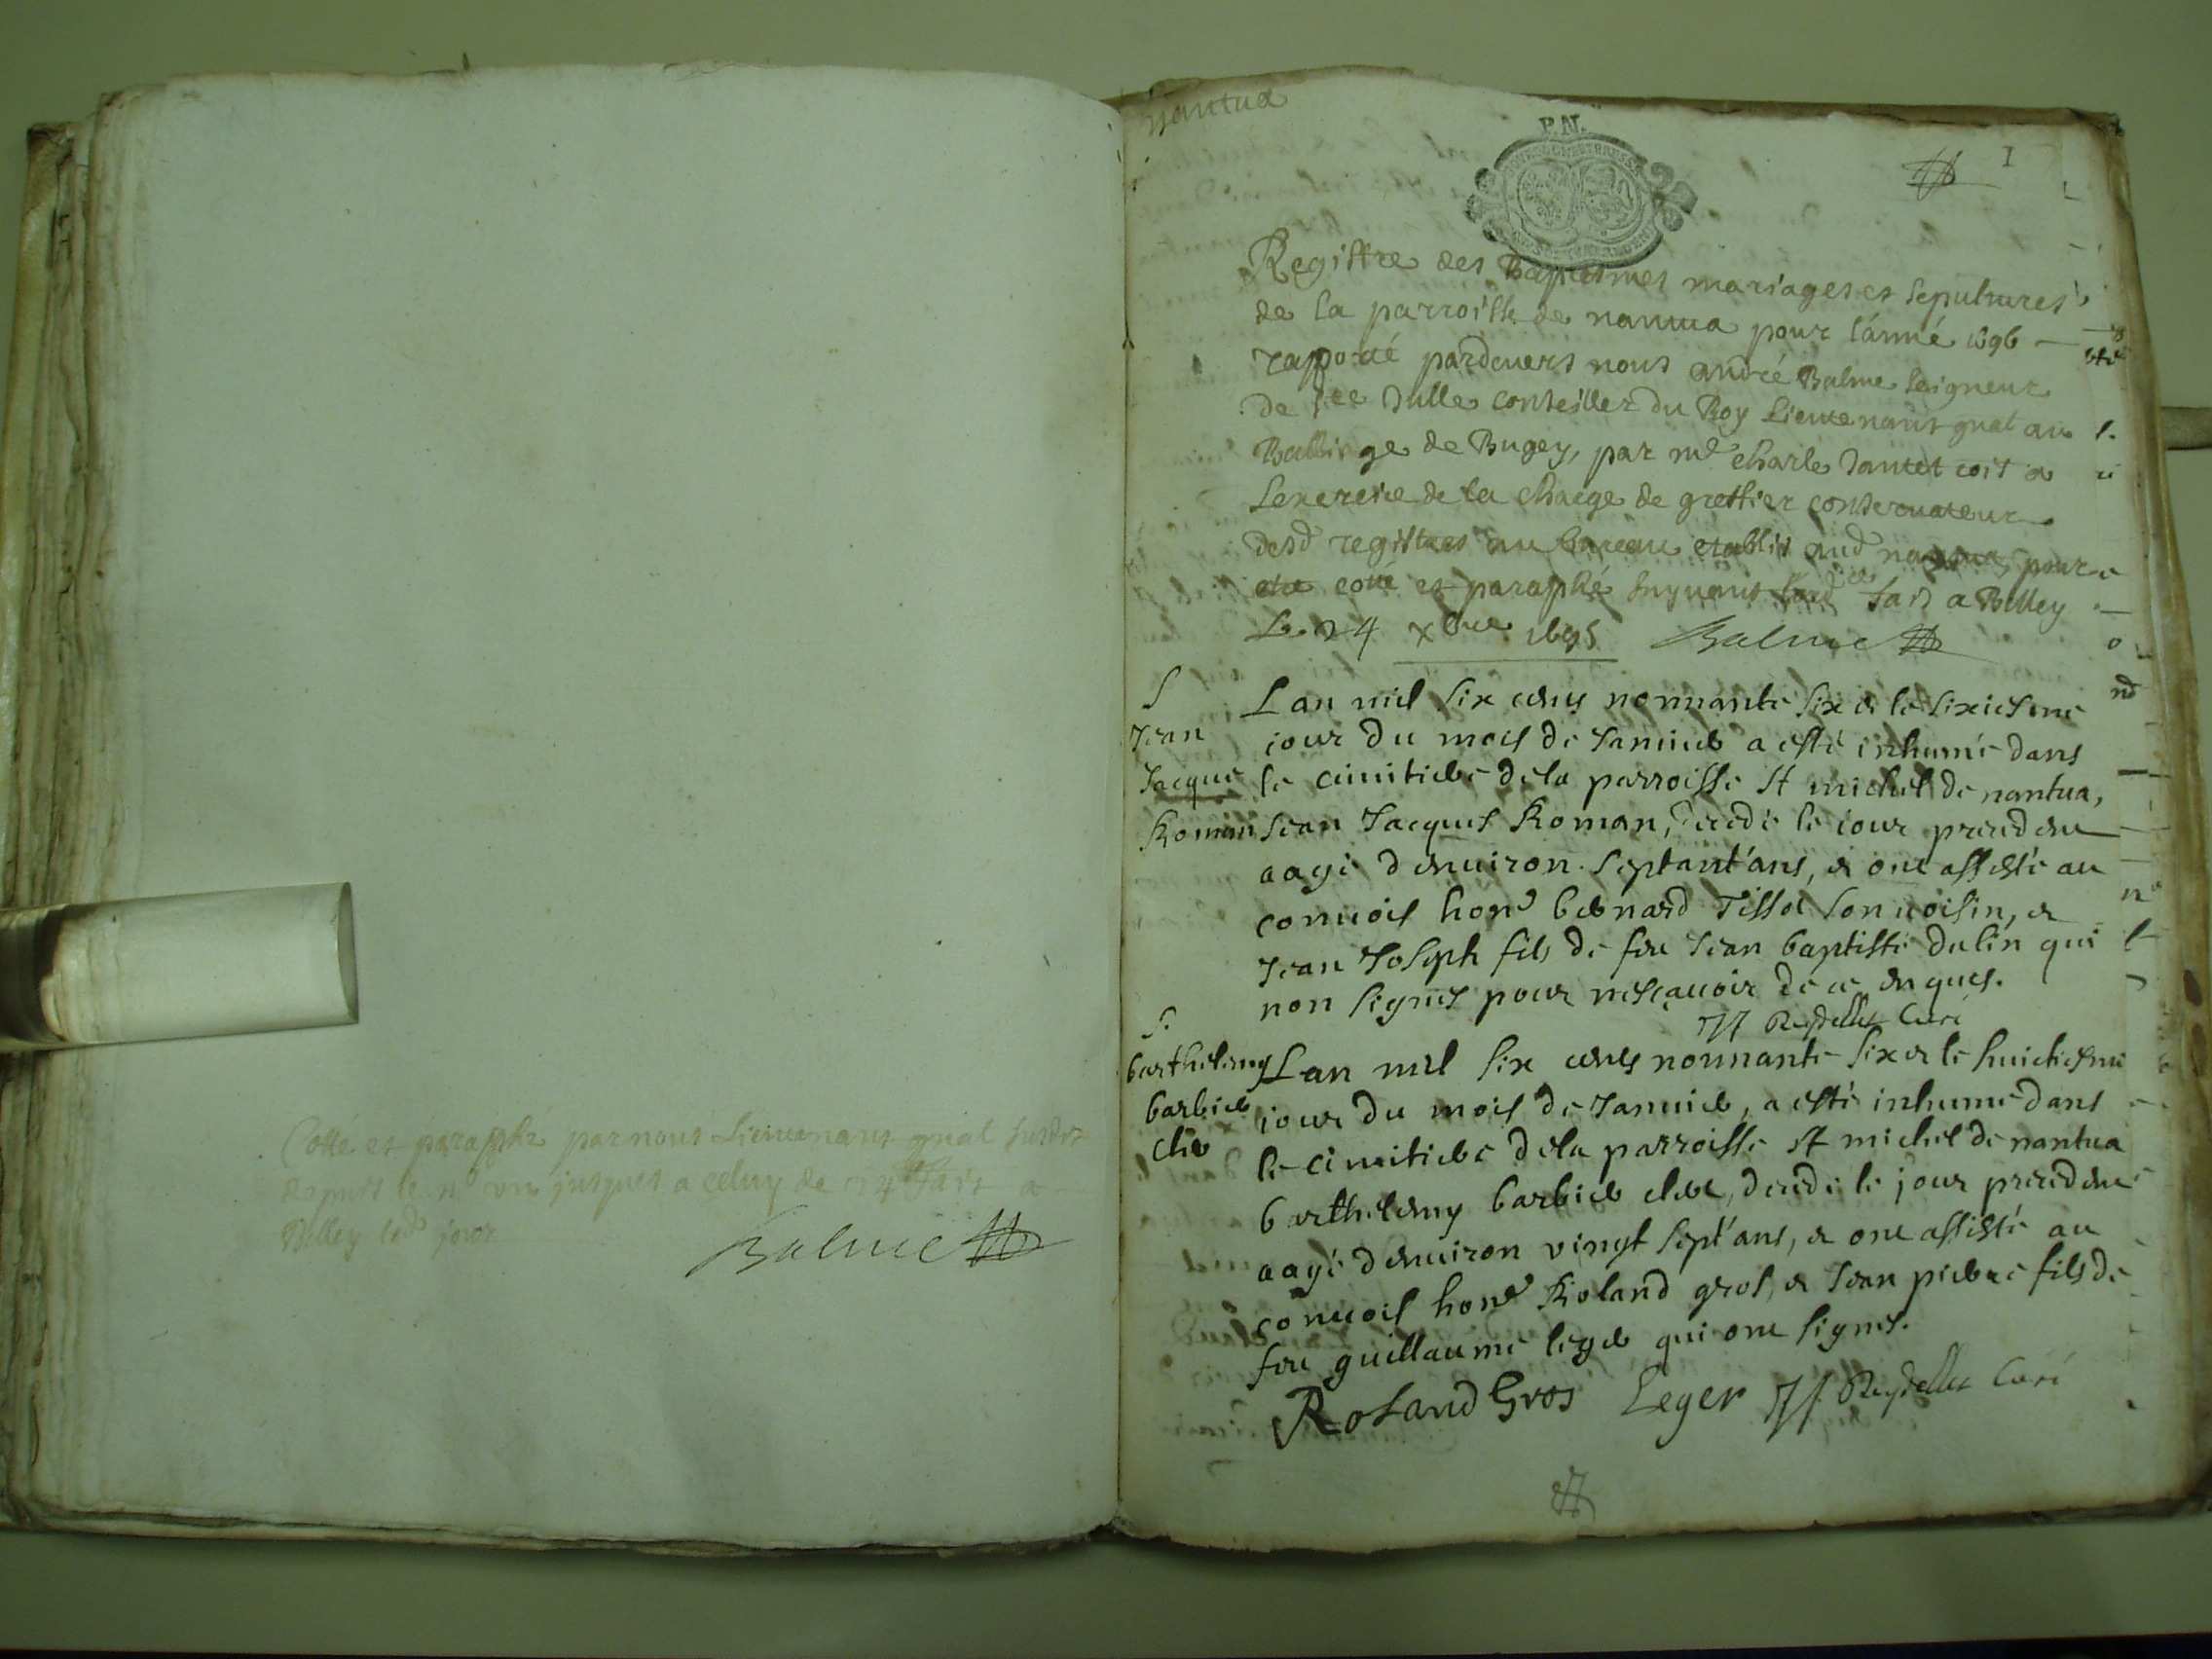 Cotté et paraphé par nous Lieutenant gnal susdit
depuis le n° un jusques a celuy de 24 fait a
Belley led jour
Balme
nantua
P.N.
1
Registre des Baptesmes mariages et sepultures
de la parroisse de nantua pour l'année 1696
rapporté pardevers nous andré Balme seigneur
de Ste Julle conseiller du Roy Lieutenant gnal au
Balliage de Bugey, par me charle Jantet coit a
Lexercice de la charge de greffier conservateur
desd registres au bureau etablit aud nantua pour
etre cotté et paraphé suyvant fait a Belley
Le 24 xbre 1695 Balme
S
Jean
Jacque
Roman
Lan mil six cents nonnante six et le sixiesme
jour du mois de Janvier a esté inhumé dans
le cimitiere de la parroisse st michel de nantua,
Jean Jacques Roman, decedé le jour precedent
aagé d'environ septant'ans, et ont assisté au
convois hone bernard Tissot son voisin, et
Jean Joseph fils de feu Jean baptiste dulin qui
non signés pour nesçavoir de ce enquis.
JJ Reydellet Curé
S.
barthelemy
barbier
clerc
Lan mil six cents nonnante six et le huictiesme
jour du mois de Janvier, a esté inhumé dans
le cimitiere de la parroisse st michel de nantua
barthelemy barbier clerc, decedé le jour precedent
aagé d'environ vingt sept'ans, et ont assisté au
convois hone Roland gros, et Jean pierre fils de
feu guillaume leger qui ont signés.
Roland Gros Leger JJ Reydellet Curé